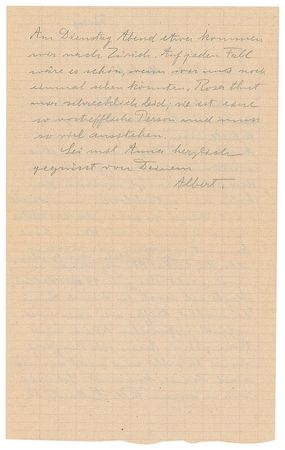 Am Dienstag Abend etwa kommen
wir nach Zürich. Auf jeden Fall
wäre es schön, wenn wir uns noch
einmal sehen könnten. Rosa thut
mir schrecklich leid, sie ist eine
so vortreffliche Person und muss
so viel ausstehen.
Sei mit Anna herzlich
gegrüsst von Deinem
Albert.